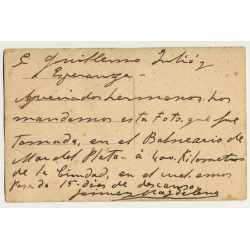 S. Guillermo Juliá y
Esperanza -
Apreciados hermanos, hos
mandamos esta foto, que fue
Tomada, en el Balneario de
Mar del Plata - á 400 Kilometros
de la Ciudad, en el cual emos
Pasado 15 - dias de descanso
Jaime y Magdalena